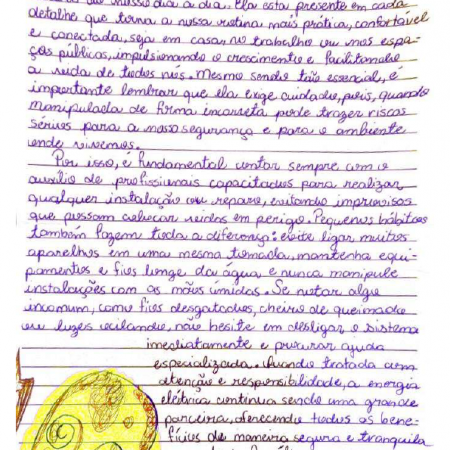 nosso dia a dia. Ela está presente em cada
detalhe que torna a nossa rotina mais prática, confortável
e conectada, seja em casa, no trabalho ou nos espa-
ços públicos, impulsionando o crescimento e facilitando
a vida de todos nós. Mesmo sendo tão essencial, é
importante lembrar que ela exige cuidado, pois, quando
manipulada de forma incorreta pode trazer riscos
sérios para a nossa segurança e para o ambiente
onde vivemos.
Por isso, é fundamental contar sempre com o
auxílio de profissionais capacitados para realizar
qualquer instalação ou reparo, evitando improvisos
que possam colocar vidas em perigo. Pequenos hábitos
também fazem toda a diferença: evite ligar muitos
aparelhos em uma mesma tomada, mantenha equi-
pamentos e fios longe da água e nunca manipule
instalações com as mãos úmidas. Se notar algo
incomum, como fios desgatados, cheiro de queimado
ou luzes oscilando, não hesite em desligar o sistema
imediatamente e procurar ajuda
especializada. Quando tratada com
atenção e responsibilidade, a energia
elétrica continua sendo uma grande
parceira, oferecendo todos os bene-
fícios de maneira segura e tranquila